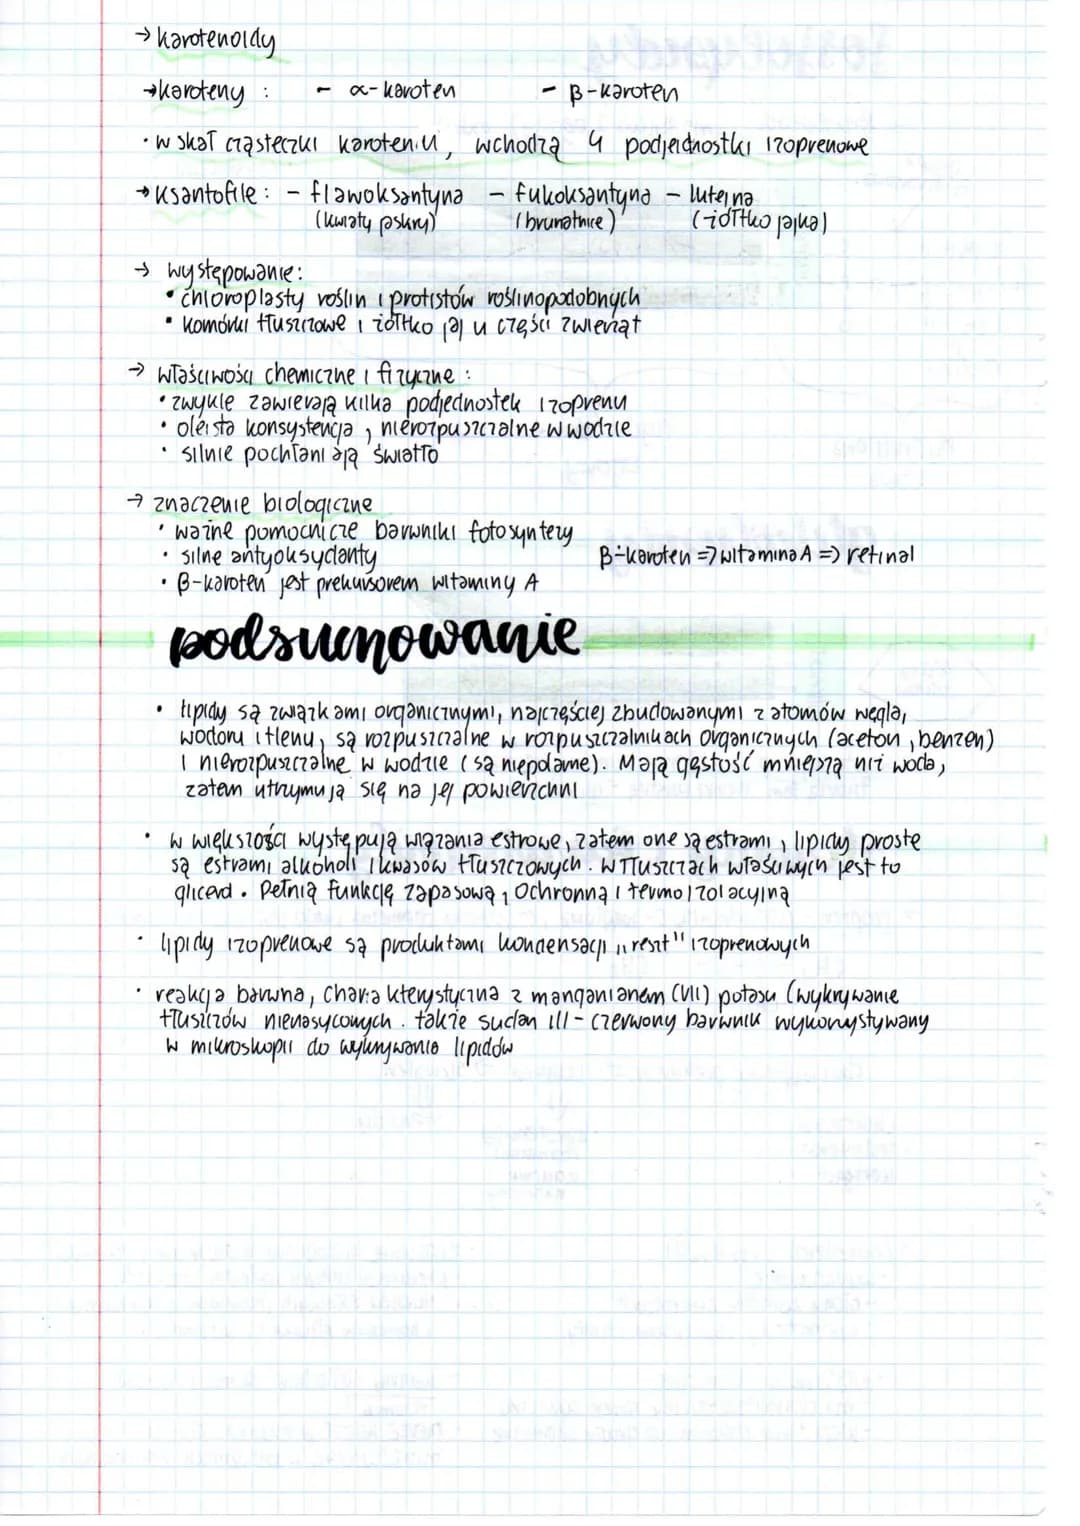 → karotenoidy
→ karoteny : - α-karoten - β-karoten
· w skał cząsteczki karotenu, wchodzą 4 podjednostki izoprenowe
→ ksantofile: - flawoksantyna - fukoksantyna - luteina
(kwiaty jaskry) (brunatnice) (żółtko jajka)
→ występowanie:
• chloroplasty roślin i protistów roślinopodobnych
• komórki tłuszczowe i żółtko jaj u części zwierząt
→ właściwości chemiczne i fizyczne :
• zwykle zawierają kilka podjednostek izoprenu
• oleista konsystencja, nierozpuszczalne w wodzie
• silnie pochłaniają światło
→ znaczenie biologiczne
• ważne pomocnicze barwniki fotosyntezy
• silne antyoksydanty β-karoten => witamina A => retinal
• β-karoten jest prekursorem witaminy A
podsumowanie
• lipidy są związkami organicznymi, najczęściej zbudowanymi z atomów węgla,
wodoru i tlenu, są rozpuszczalne w rozpuszczalnikach organicznych (aceton, benzen)
i nierozpuszczalne w wodzie (są niepolarne). Mają gęstość mniejszą niż woda,
zatem utrzymują się na jej powierzchni
• w większości występują wiązania estrowe, zatem one są estrami, lipidy proste
są estrami alkoholi i kwasów tłuszczowych. W tłuszczach właściwych jest to
glicerol. Pełnią funkcję zapasową, ochronną i termoizolacyjną
• lipidy izoprenowe są produktami kondensacji „reszt" izoprenowych
• reakcja barwna, charakterystyczna z manganianem (VII) potasu (wykrywanie
tłuszczów nienasyconych. także sudan III - czerwony barwnik wykorzystywany
w mikroskopii do wykrywania lipidów